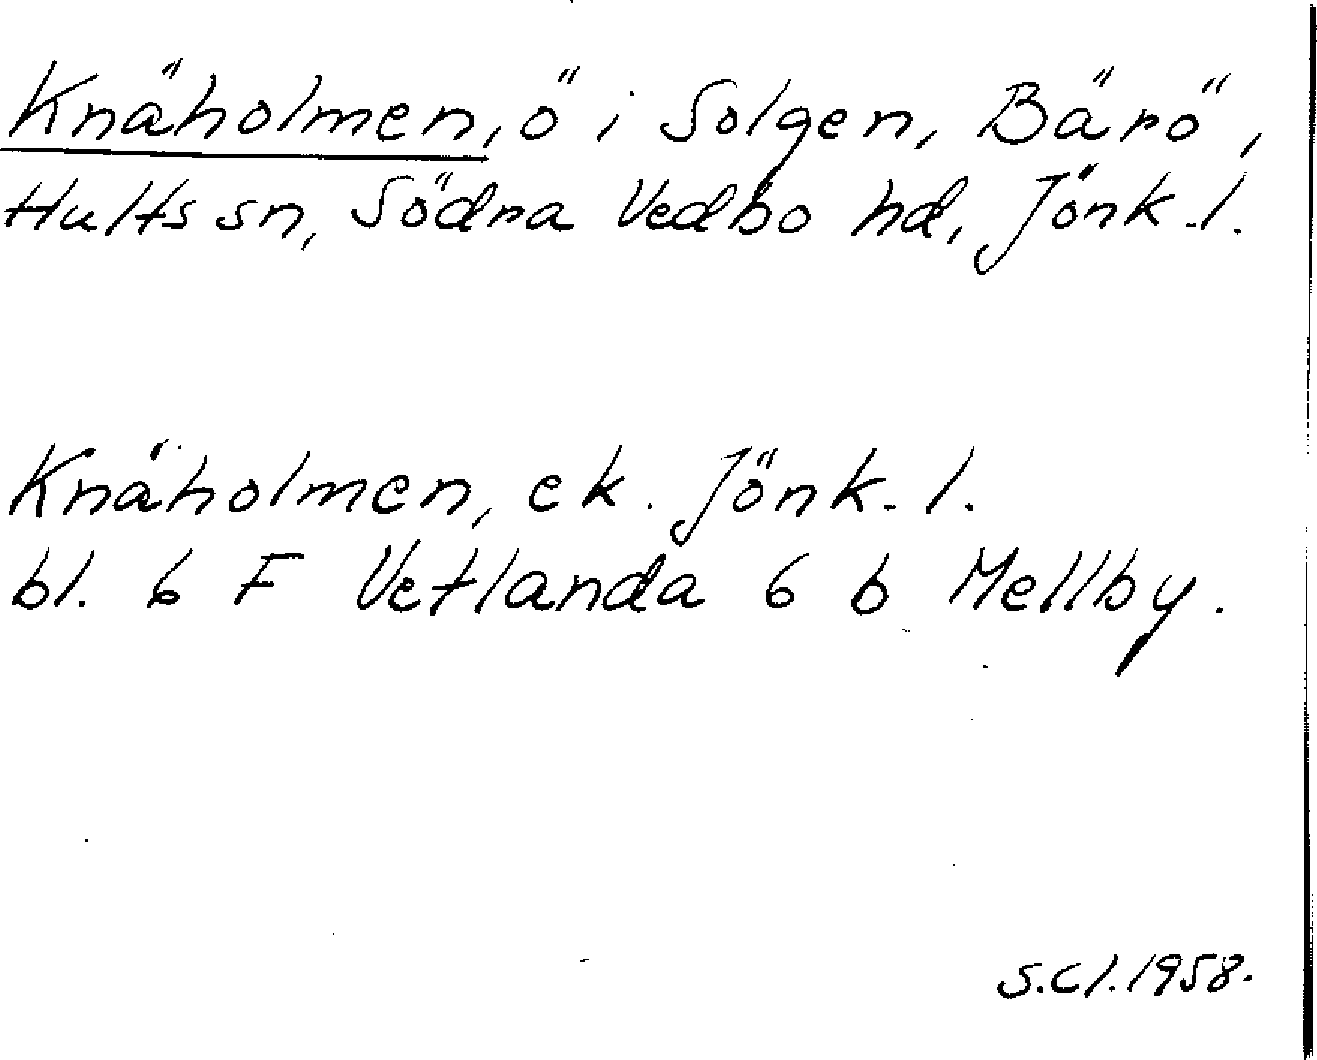 Knäholmen, ö i Solgen, Bärö,
Hults sn, Södra Vedbo hd, Jönk.l.
Knäholmen, ek. Jönk.l.
bl. 6 F Vetlanda 6 b Mellby.
S.Cl.1958.